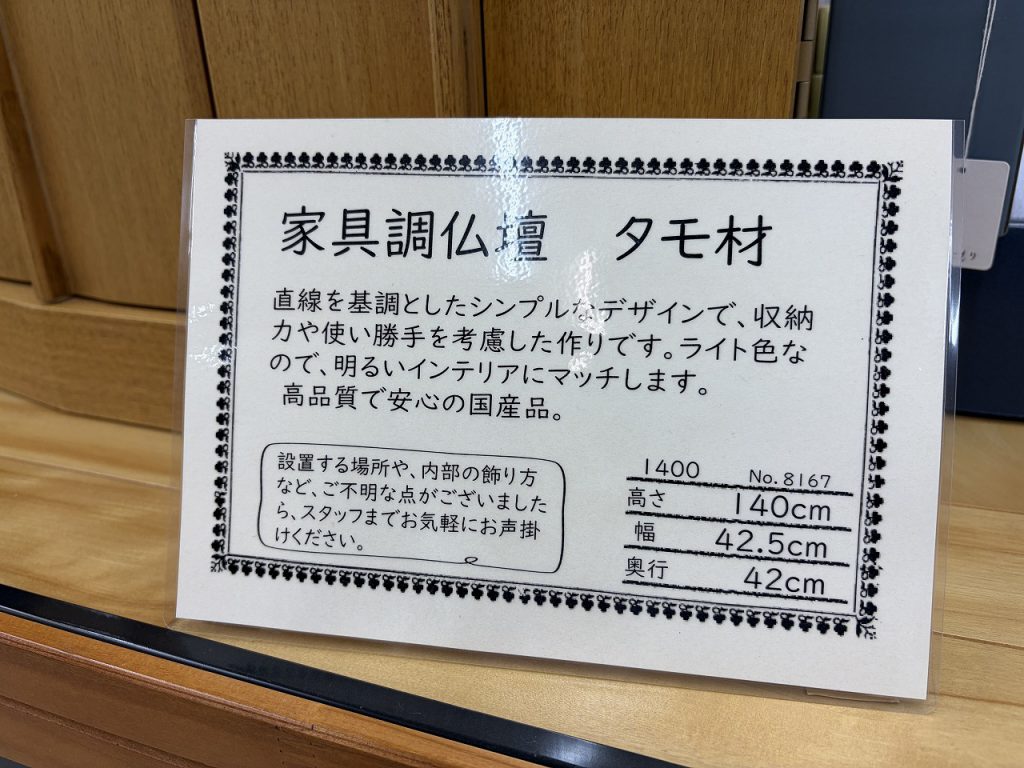 家具調仏壇　タモ材
直線を基調としたシンプルなデザインで、収納
力や使い勝手を考慮した作りです。ライト色な
ので、明るいインテリアにマッチします。
高品質で安心の国産品。
設置する場所や、内部の飾り方
など、ご不明な点がございました
ら、スタッフまでお気軽にお声掛
けください。
1400 No.8167
高さ 140cm
幅 42.5cm
奥行 42cm